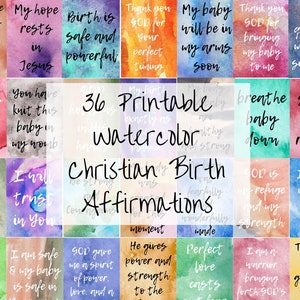 My hope
rests
in
Jesus
Birth is
safe and
powerful
Thank
you
GOD for
your
perfect
timing
My baby
will be
in my
arms
soon
Thank you
GOD for
bringing
my baby
to me
You have
knit this
baby in
my womb
breathe
baby
down
36 Printable
Watercolor
Christian Birth
Affirmations
I will
trust
in You
moment
fearfully
made
GOD is
my refuge
and my
strength
I am safe
& my baby
is safe in
GOD gave
me a spirit
of power,
love, and a
He gives
power and
strength to
the
Perfect
love
casts
I am a
warrior,
bringing
forth GOD'S